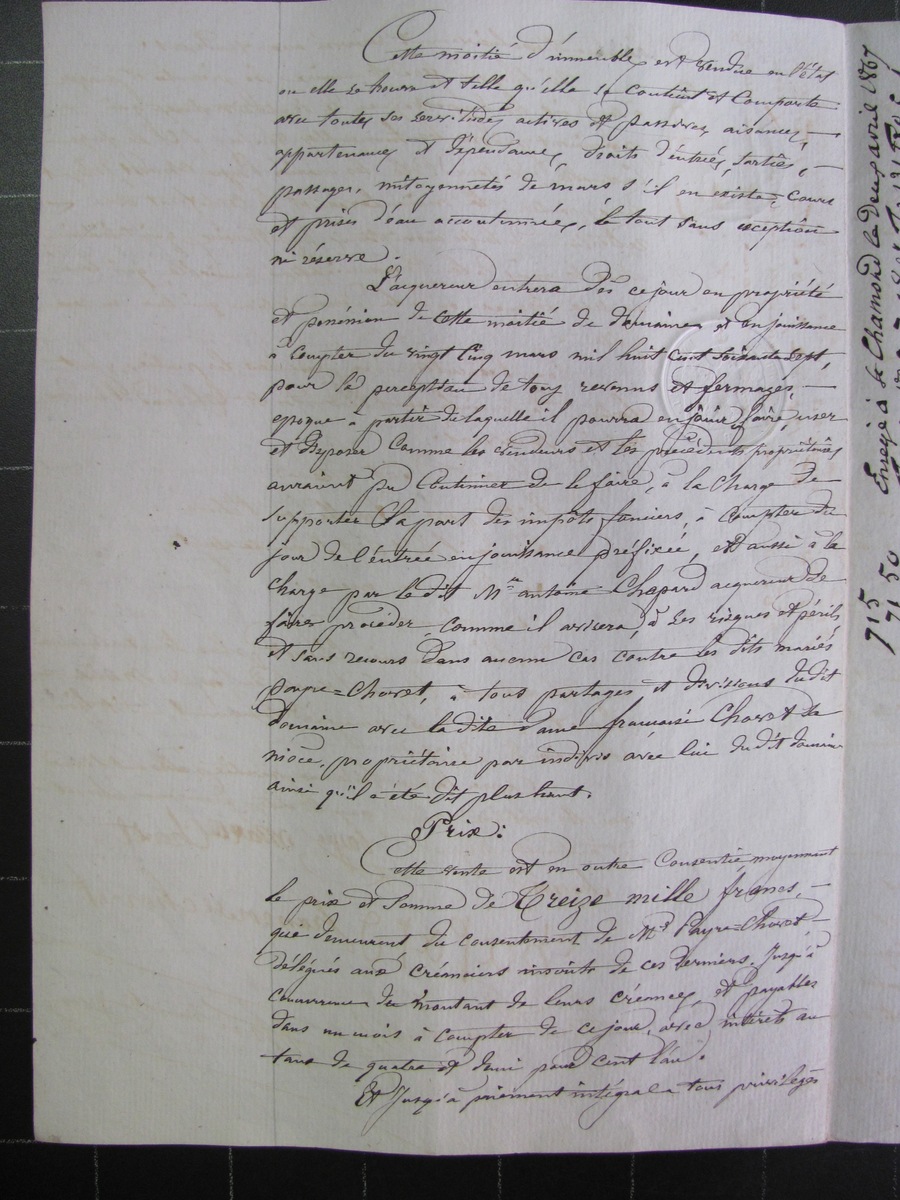 Cette moitié d'immeubles est vendue en l'état
ou elle se trouve et telle qu'elle se contient et comporte
avec toutes ses servitudes actives et passives, aisances,
appartenances et dépendances, droits d'entrées, sorties,
passages, mitoyennetés de murs s'il en existe, cours
et prises d'eau accoutumées, le tout sans exception
ni réserve.
L'aquereur entrera dès ce jour en propriété
et possession de cette moitié de domaines et en jouissance
à compter du vingt cinq mars mil huit cent soixante sept,
pour la perception de tous revenus et fermages,
epoque à partir de laquelle il pourra en jouir, faire, user
et disposer comme les vendeurs et les précédents propriétaires
auraient pu continuer de le faire, à la charge de
supporter la part des impôts fonciers, à compter du
jour de l'entrée en jouissance préfixée, et aussi à la
charge par le dit Mr antoine Chapard acquereur de
faire procéder, comme il avisera, à ses risques et périls
et sans recours dans aucun cas contre les dits mariés
payre=Chovet, à tous partages et divisions dudit
domaine avec la dite dame françoise Chovet sa
nièce, propriétaire par indivis avec lui dudit domaine
ainsi qu'il a été dit plus haut.
Prix:
Cette vente est en outre consentie moyennant
le prix et somme de Treize mille francs,
qui demeurent du consentement de Mrs Payre=Chovet,
délégués aux créanciers inscrits de ces derniers, jusqu'à
concurrence du montant de leurs créances, et payables
dans un mois à compter de ce jour, avec intérêts au
taux de quatre et demi pour cent l'an.
Et jusqu'à paiement intégral a tous privilèges
Enregé à St Chamond le deux avril 1867
715
71 50